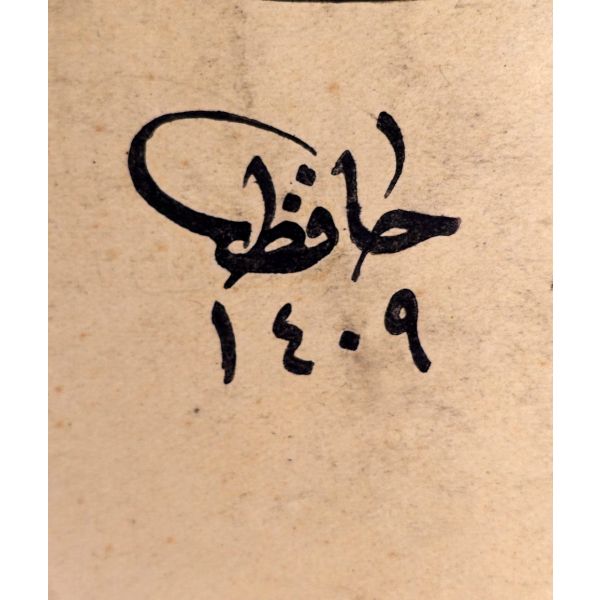 حافظ
١٤٠٩